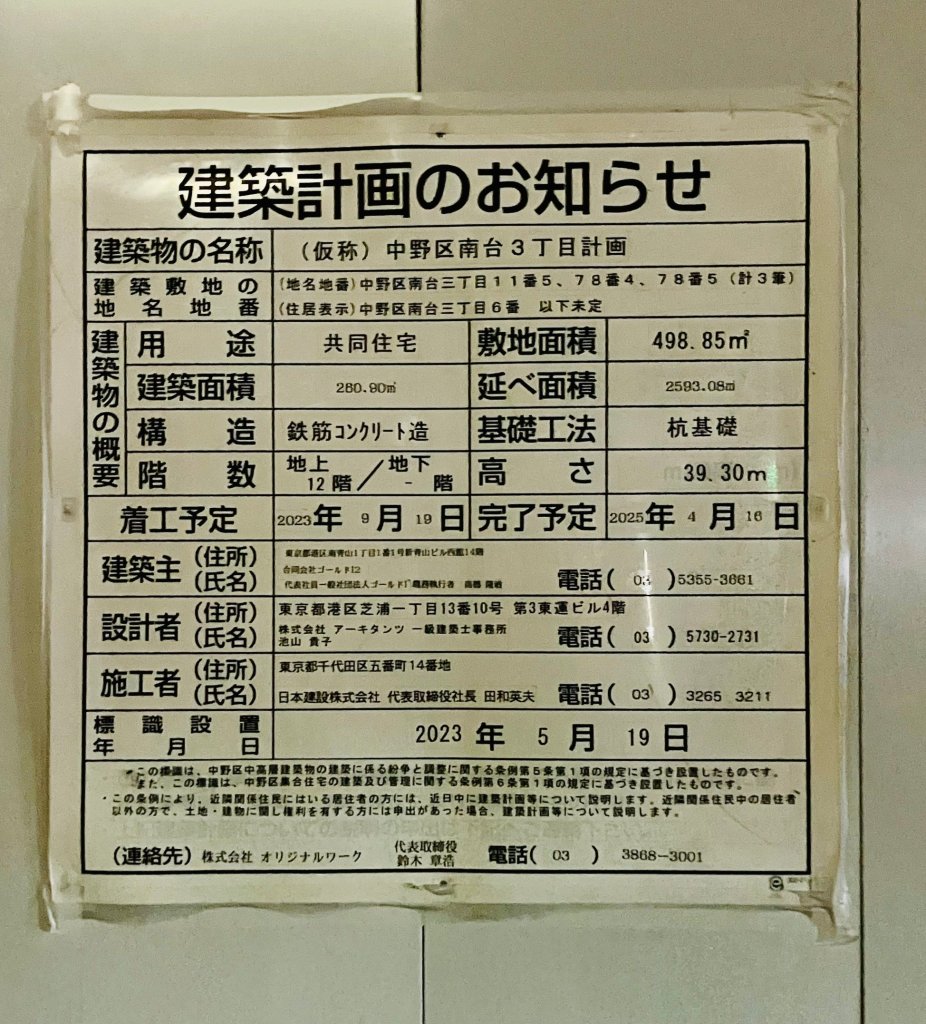 建築計画のお知らせ
建築物の名称 （仮称）中野区南台３丁目計画
建築敷地の地名地番 (地名地番)中野区南台三丁目１１番５、７８番４、７８番５（計３筆）
(住居表示)中野区南台三丁目６番 以下未定
建築物の概要
用途 共同住宅 敷地面積 498.85㎡
建築面積 260.90㎡ 延べ面積 2593.08㎡
構造 鉄筋コンクリート造 基礎工法 杭基礎
階数 地上12階／地下-階 高さ 39.30m
着工予定 2023年9月19日 完了予定 2025年4月16日
建築主 (住所) 東京都港区南青山1丁目1番1号新青山ビル西館14階
合同会社ゴールド12
(氏名) 代表社員一般社団法人ゴールド 職務執行者 電話( 03 )5355-3661
設計者 (住所) 東京都港区芝浦一丁目13番10号 第3東運ビル4階
(氏名) 株式会社 アーキタンツ 一級建築士事務所
池山 貴子 電話( 03 )5730-2731
施工者 (住所) 東京都千代田区五番町14番地
(氏名) 日本建設株式会社 代表取締役社長 田和英夫 電話( 03 )3265 3211
標識設置年月日 2023年5月19日
・この標識は、中野区中高層建築物の建築に係る紛争と調整に関する条例第5条第1項の規定に基づき設置したものです。
また、この標識は、中野区集合住宅の建築及び管理に関する条例第6条第1項の規定に基づき設置したものです。
・この条例により、近隣関係住民にはいる居住者の方には、近日中に建築計画等について説明します。近隣関係住民中の居住者
以外の方で、土地・建物に関し権利を有する方には申出があった場合、建築計画等について説明します。
(連絡先) 株式会社 オリジナルワーク 代表取締役 鈴木 章浩 電話( 03 ) 3868-3001